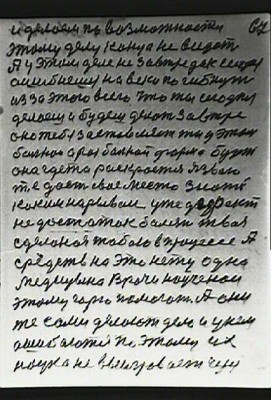 и делаем по возможности 67
этому делу конца не видать
А у этом деле не завтра дак сегодня
ошибнешу на веко погибнуть
из за этого всего что ты сегодня
делаеш и будеш делать завтра
оно тебя заставляет ты у этом
больное а раз больной форма будет
она где та раскроется язваю
т.е. даст свое место знать
каким нарывам. уже дефект
недостаток болезни твоя
сделаной табою в процессе А
средств на это нету одна
медицина врачи научены
этому горю помогать. А они
те сами делают дело и у нем
ошибаются поэтому их
наука не